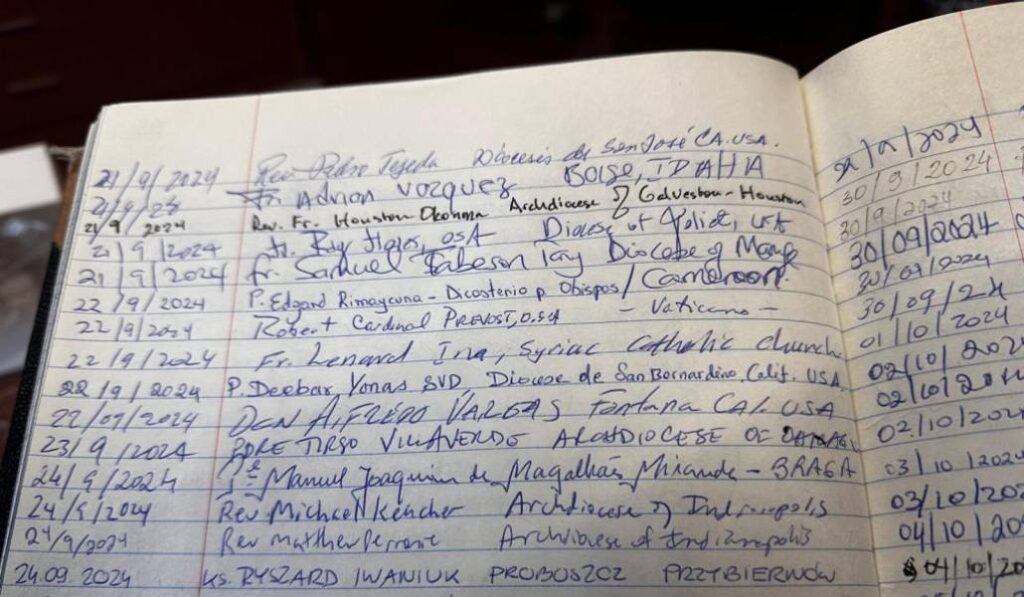 21/9/2024 Rev. Pedro Tejeda Diócesis de San José CA. USA.
21/9/24 Fr. Adrian Vazquez BOISE, IDAHA
21/9/2024 Rev. Fr. Houston Okonma Archdiocese of Galveston-Houston
21/9/2024 Fr. Ray Flores, OSA Diocese of Joliet, USA
21/9/2024 Fr. Samuel Diocese of
22/9/2024 P. Edgard Rimaycuna - Dicasterio p. Obispos / Cameroon.
22/9/2024 Robert Cardinal PREVOST, O.S.A - Vaticano -
22/9/2024 Fr. Lenard Ina, Syriac Catholic church
22/9/2024 P. Deebar Yonas SVD, Diocese de San Bernardino. Calif. USA.
22/09/2024 DON ALFREDO VARGAS Fontana CAL. USA
23/9/2024 PDRE TIRSO VILLAVERDE ARCHDIOCESE OF
24/9/2024 Pe Manuel Joaquim de Magalhães Miranda - BRAGA
24/9/2024 Rev. Michael Keucher Archdiocese of Indianapolis
24/9/2024 Rev Matthew Perronie Archdiocese of Indianapolis
24.09.2024 KS. RYSZARD IWANIUK PROBOSZCZ PRZYBIERNÓW
30/9/2024
30/9/2024
30/09/2024
30/09/2024
30/09/24
01/10/2024
02/10/2024
02/10/2024
02/10/2024
03/10/2024
03/10/202
04/10/20
04/10/20